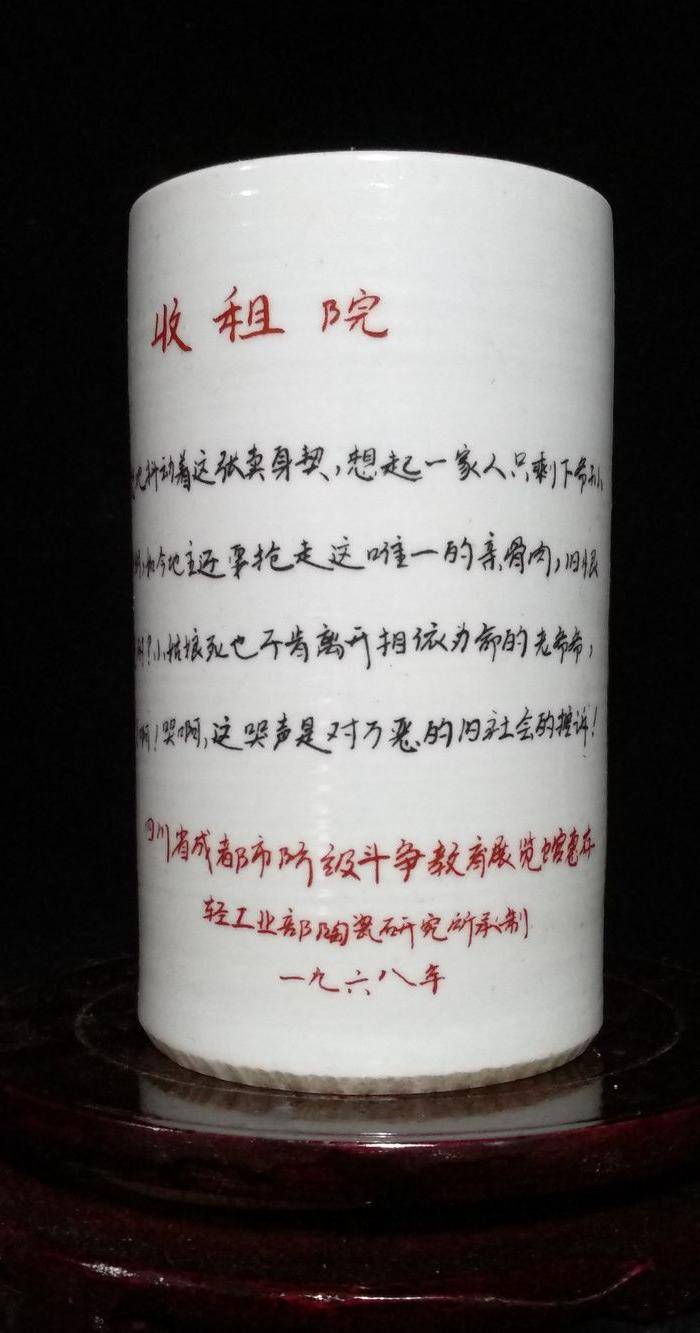 收租院
地抖动着这张卖身契,想起一家人只剩下爷孙
如今地主还要抢走这唯一的亲骨肉,旧恨
啊?小姑娘死也不肯离开相依为命的老爷爷,
啊!哭啊,这哭声是对万恶的旧社会的控诉!
四川省成都市阶级斗争教育展览馆惠存
轻工业部陶瓷研究所承制
一九六八年